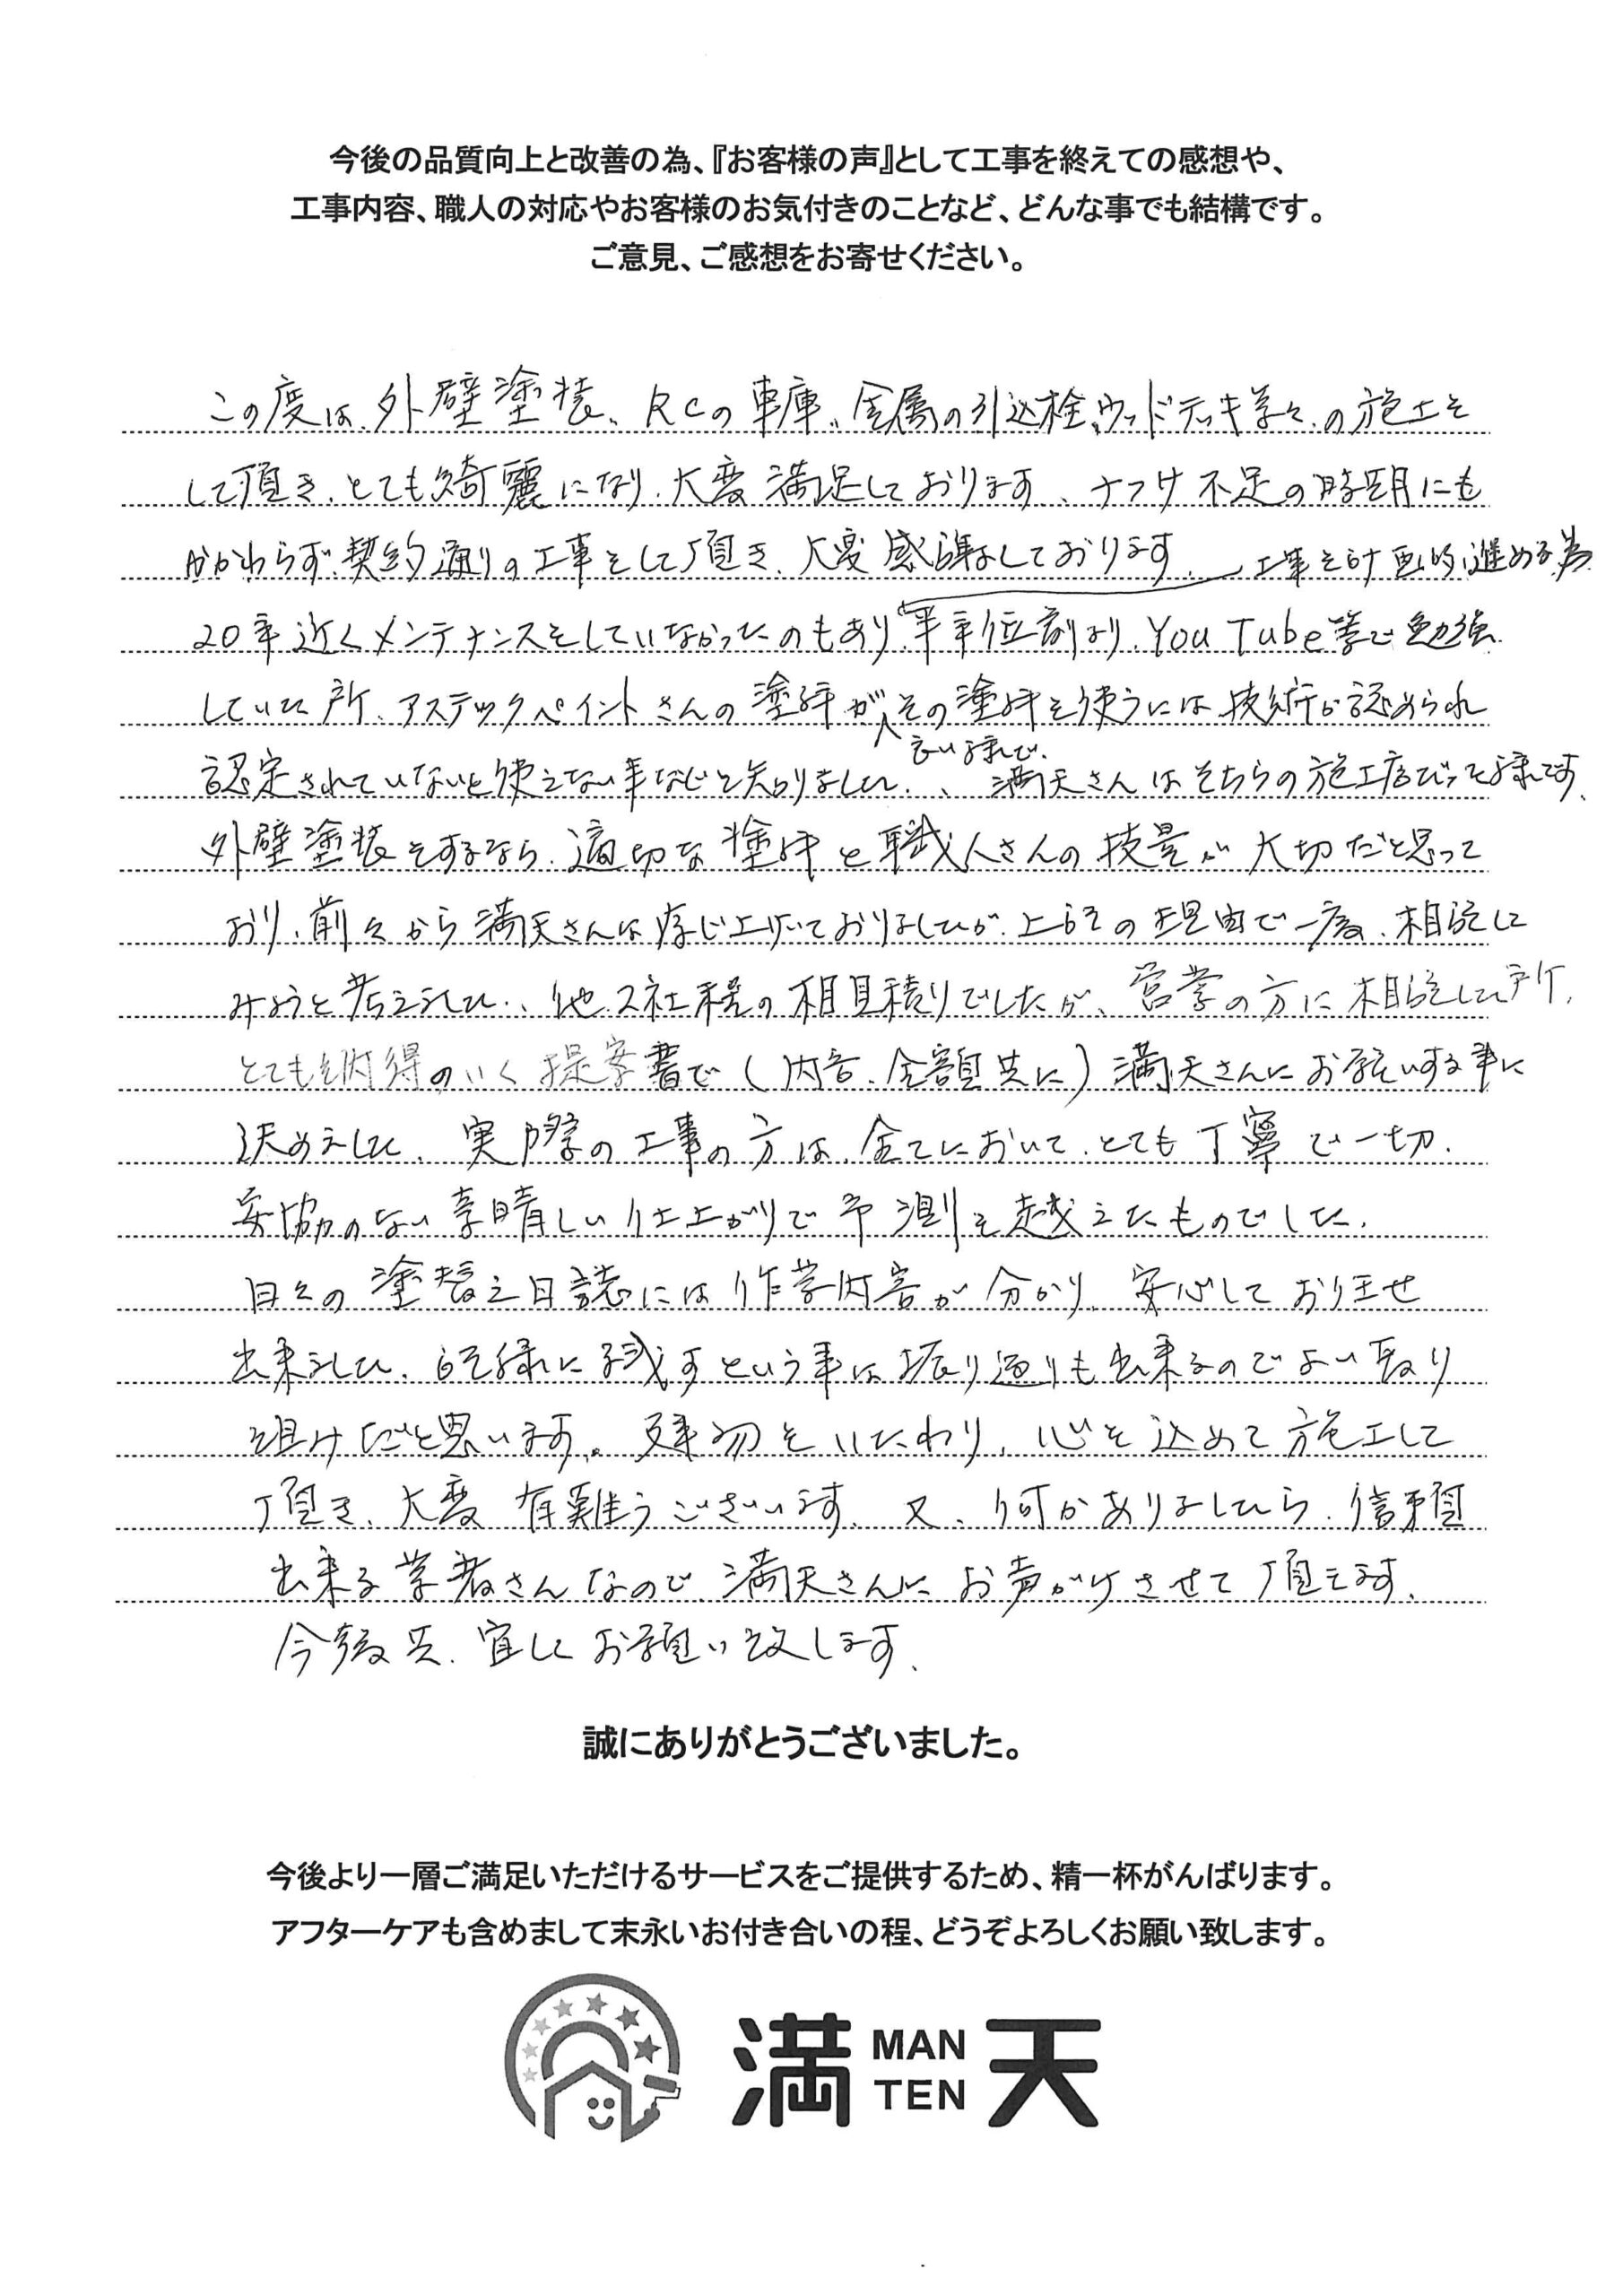 今後の品質向上と改善の為、『お客様の声』として工事を終えての感想や、
工事内容、職人の対応やお客様のお気付きのことなど、どんな事でも結構です。
ご意見、ご感想をお寄せください。
この度は、外壁塗装、RCの車庫、金属の引込栓、ウッドデッキ等々、の施工を
して頂き、とても綺麗になり、大変満足しております、ナフサ不足の時期にも
かかわらず、契約通りの工事をして頂き、大変感謝しております、
工事を計画的に進める為、
20年近くメンテナンスをしていなかったのもあり、半年位前より、YouTube等で勉強
していた所、アステックペイントさんの塗料が、その塗料を使うには技術が認められ
良い様で、
認定されていないと使えない事などを知りました、、満天さんはそちらの施工店だった様です、
外壁塗装をするなら、適切な塗料と職人さんの技量が大切だと思って
おり、前々から満天さんは存じ上げておりましたが、上記の理由で一度、相談して
みようと考えました、、他、2社程の相見積りでしたが、営業の方に相談した所、
とても納得のいく提案書で(内容、金額共に)満天さんにお願いする事に
決めました、実際の工事の方は、全てにおいて、とても丁寧で一切、
妥協のない素晴しい仕上がりで予測を越えたものでした、
日々の塗替え日誌には作業内容が分かり、安心してお任せ
出来ました、記録に残すという事は振り返りも出来るのでよい取り
組みだと思います。建物をいたわり、心を込めて施工して
頂き、大変有難うございます、又、何かありましたら、信頼
出来る業者さんなので、満天さんにお声がけさせて頂きます、
今後共、宜しくお願い致します、
誠にありがとうございました。
今後より一層ご満足いただけるサービスをご提供するため、精一杯がんばります。
アフターケアも含めまして末永いお付き合いの程、どうぞよろしくお願い致します。
満 MAN TEN 天